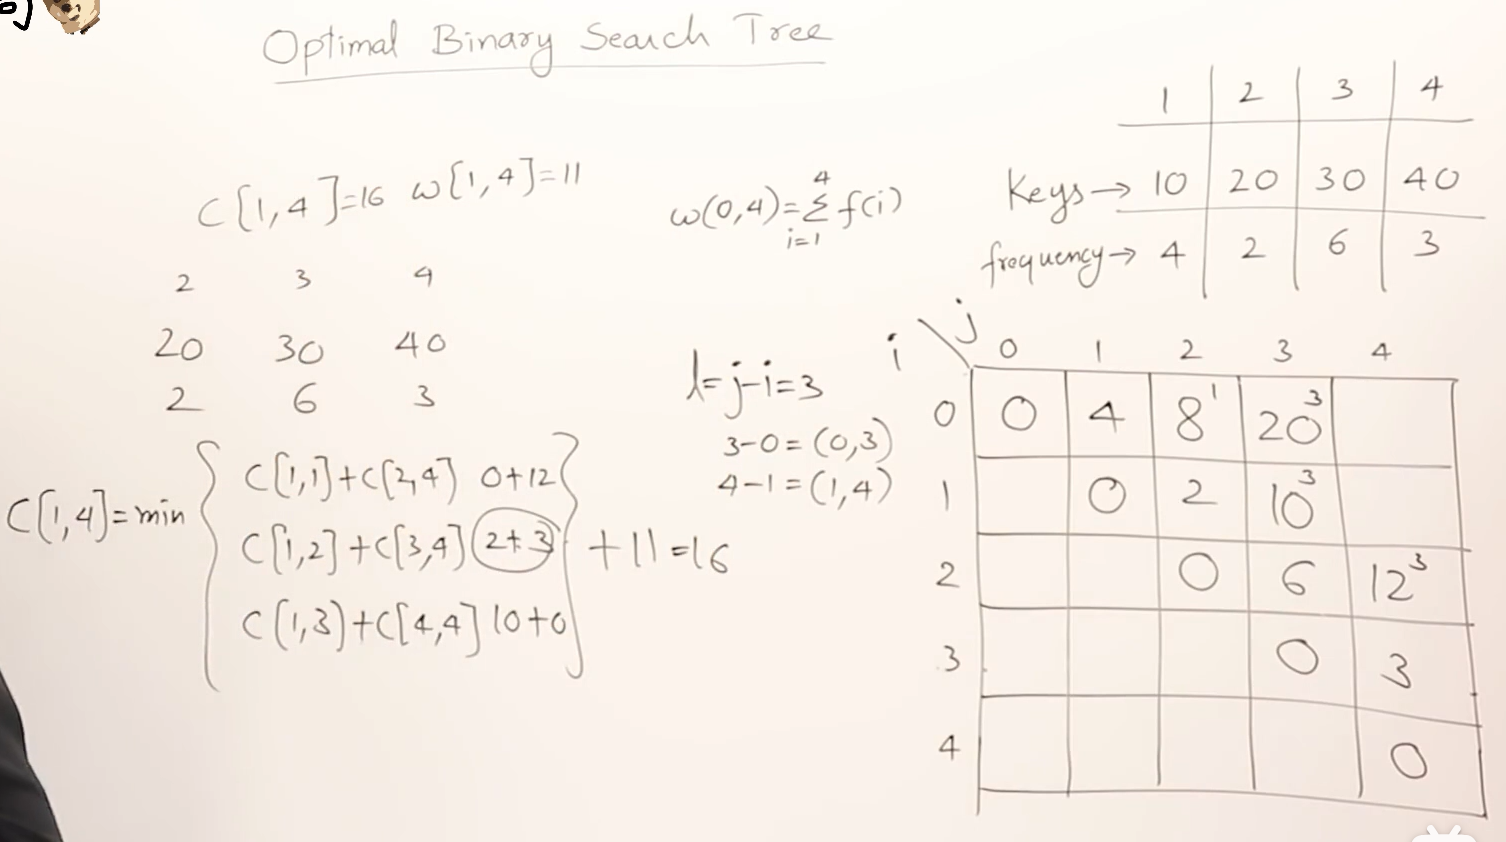 司
Optimal Binary Search Tree
C[1,4]=16 w[1,4]=11
2 3 4
20 30 40
2 6 3
C[1,4]=min
C[1,1]+C[2,4] 0+12
C[1,2]+C[3,4] 2+3
C[1,3)+C[4,4] 10+0
+11=16
w(0,4)=Σ f(i)
4
i=1
l=j-i=3
3-0=(0,3)
4-1=(1,4)
1 2 3 4
Keys→ 10 20 30 40
frequency→ 4 2 6 3
i \ j
0 1 2 3 4
0 0 4 8¹ 20³
1 0 2 10³
2 0 6 12³
3 0 3
4 0